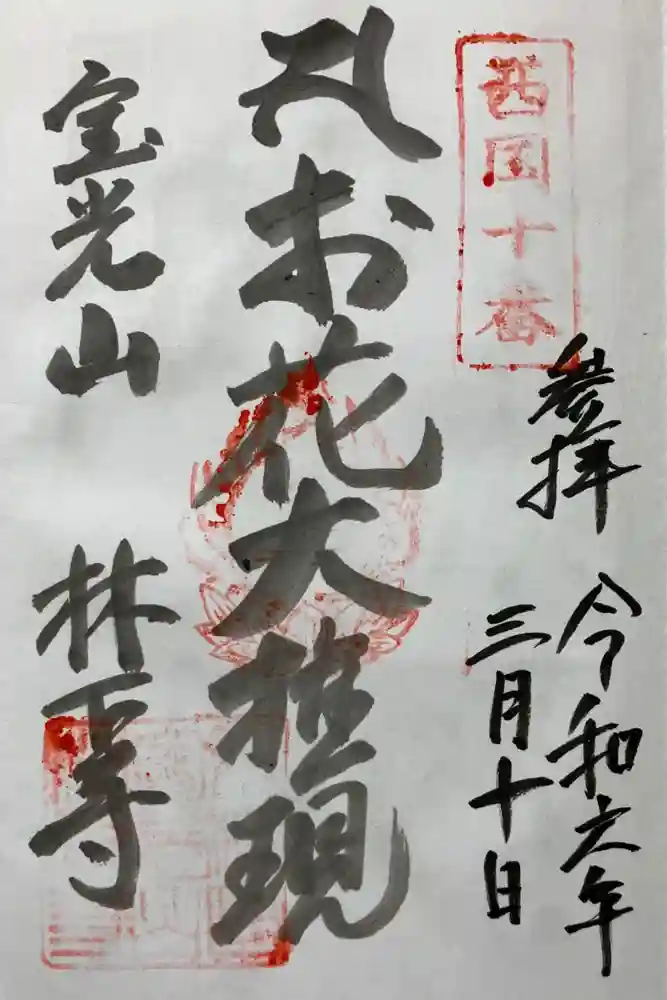 西国十番
参拝 令和六年
三月十日
お花大権現
宝光山 林正寺